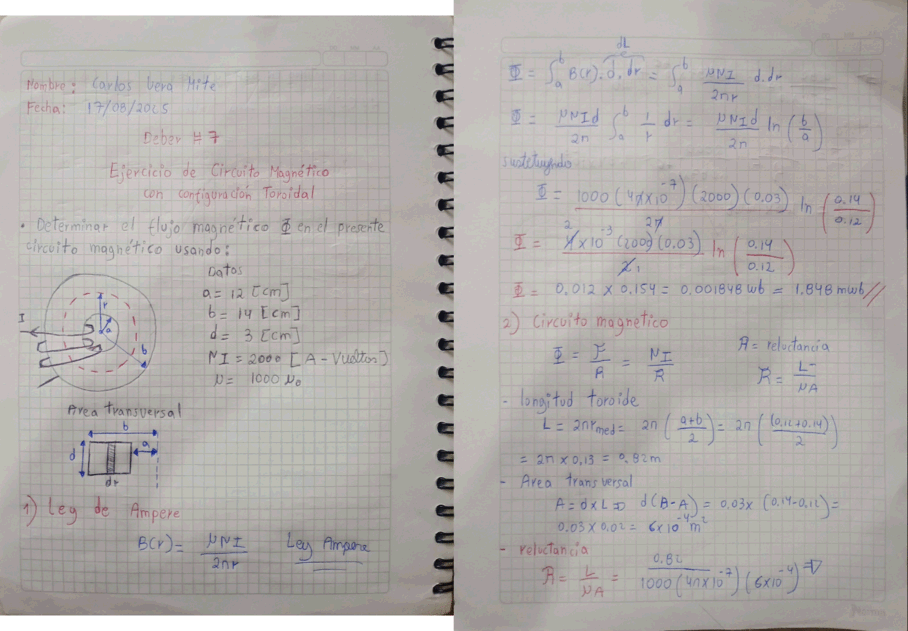 Nombre: Carlos Vera Mite
Fecha: 17/08/2025
Deber # 7
Ejercicio de Circuito Magnético
con configuración Toroidal
• Determinar el flujo magnético Φ en el presente
circuito magnético usando:
Datos
a = 12 [cm]
b = 14 [cm]
d = 3 [cm]
NI = 2000 [A - Vueltas]
μ = 1000 μo
I
r
a
b
Area transversal
b
a
d
dr
1) Ley de Ampere
B(r) = μNI / 2πr Ley Ampere
dL
Φ = ∫_a^b B(r). d. dr = ∫_a^b μNI / 2πr d.dr
Φ = μNId / 2π ∫_a^b 1/r dr = μNId / 2π ln (b/a)
Φ = 1000 (4π×10^-7) (2000) (0.03) / 2π ln (0.14 / 0.12)
Φ = 4×10^-3 (2000) (0.03) / 2 ln (0.14 / 0.12)
Φ = 0.012 × 0.154 = 0.001848 wb = 1.848 mwb //
2) Circuito magnético
Φ = F/R = NI/R R = reluctancia
R = L / μA
- longitud toroide
L = 2πrmed = 2π (a+b / 2) = 2π ((0.12+0.14) / 2)
= 2π × 0.13 = 0.82m
- Area transversal
A = d×L ⇒ d(B-A) = 0.03× (0.14-0.12) =
0.03 × 0.02 = 6×10^-4 m²
- reluctancia
R = L / μA = 0.82 / 1000 (4π×10^-7) (6×10^-4) ⇒